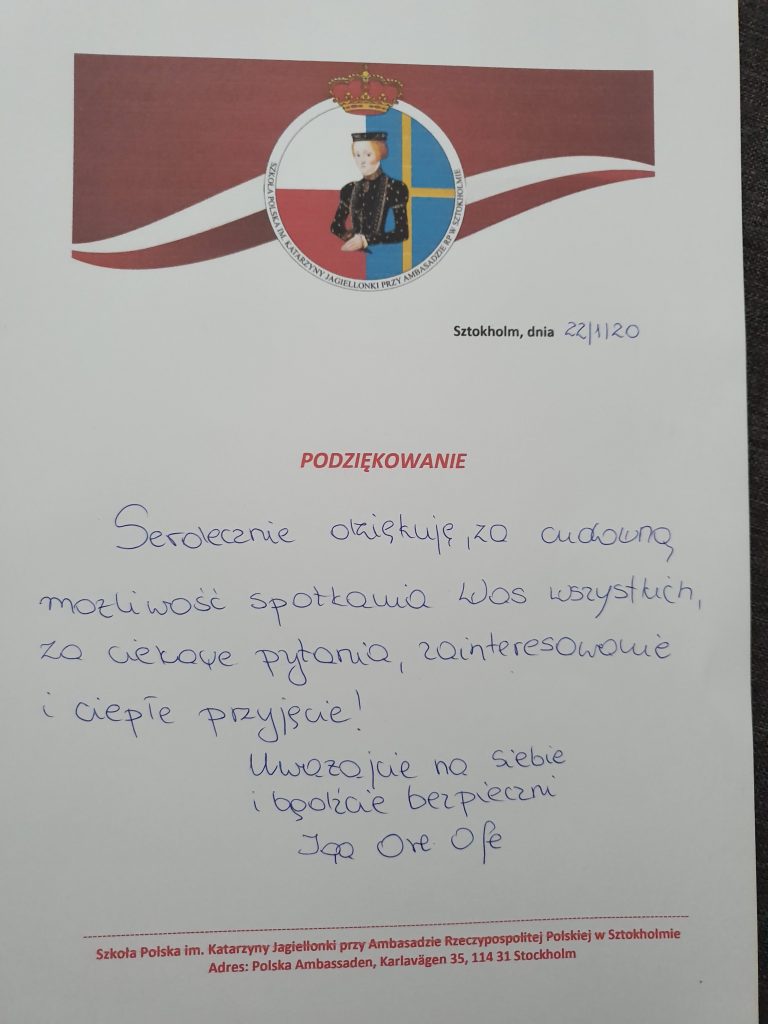 SZKOŁA POLSKA IM. KATARZYNY JAGIELLONKI PRZY AMBASADZIE RP W SZTOKHOLMIE
Sztokholm, dnia 22/1/20
PODZIĘKOWANIE
Serdecznie dziękuję, za cudowną
możliwość spotkania Was wszystkich,
za ciekawe pytania, zainteresowanie
i ciepłe przyjęcie!
Uważajcie na siebie
i bądźcie bezpieczni
Iga Ore Ofe
Szkoła Polska im. Katarzyny Jagiellonki przy Ambasadzie Rzeczypospolitej Polskiej w Sztokholmie
Adres: Polska Ambassaden, Karlavägen 35, 114 31 Stockholm